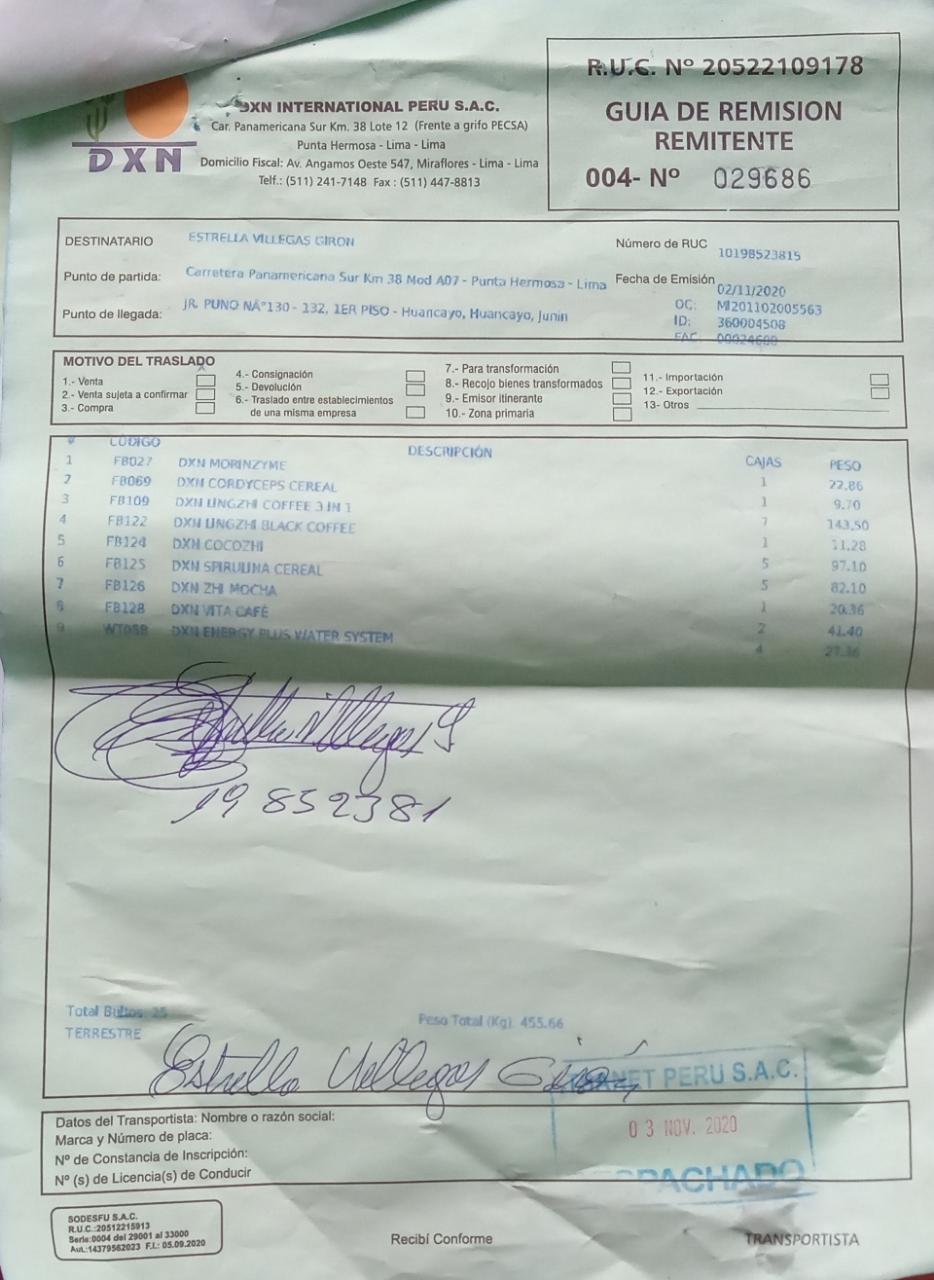 DXN
DXN INTERNATIONAL PERU S.A.C.
Car. Panamericana Sur Km. 38 Lote 12 (Frente a grifo PECSA)
Punta Hermosa - Lima - Lima
Domicilio Fiscal: Av. Angamos Oeste 547, Miraflores - Lima - Lima
Telf.: (511) 241-7148 Fax : (511) 447-8813
R.U.C. Nº 20522109178
GUIA DE REMISION
REMITENTE
004- Nº 029686
DESTINATARIO ESTRELLA VILLEGAS GIRON
Número de RUC 10198523815
Punto de partida: Carretera Panamericana Sur Km 38 Mod A07 - Punta Hermosa - Lima
Fecha de Emisión 02/11/2020
Punto de llegada: JR. PUNO NÂ°130 - 132, 1ER PISO - Huancayo, Huancayo, Junin
OC: MI201102005563
ID: 360004508
FAC: 00024600
MOTIVO DEL TRASLADO
1.- Venta
2.- Venta sujeta a confirmar
3.- Compra
4.- Consignación
5.- Devolución
6.- Traslado entre establecimientos
de una misma empresa
7.- Para transformación
8.- Recojo bienes transformados
9.- Emisor itinerante
10.- Zona primaria
11.- Importación
12.- Exportación
13- Otros
# CÓDIGO DESCRIPCIÓN CAJAS PESO
1 FB027 DXN MORINZYME 1 22.86
2 FB069 DXN CORDYCEPS CEREAL 1 9.70
3 FB109 DXN LINGZHI COFFEE 3 IN 1 7 143.50
4 FB122 DXN LINGZHI BLACK COFFEE 1 11.28
5 FB124 DXN COCOZHI 5 97.10
6 FB125 DXN SPIRULINA CEREAL 5 82.10
7 FB126 DXN ZHI MOCHA 1 20.36
8 FB128 DXN VITA CAFÉ 2 41.40
9 WT05B DXN ENERGY PLUS WATER SYSTEM 4 27.36
19852381
Total Bultos: 25
Peso Total (Kg): 455.66
TERRESTRE
Estrella Villegas Girón
NET PERU S.A.C.
03 NOV. 2020
SPACHADO
Datos del Transportista: Nombre o razón social:
Marca y Número de placa:
Nº de Constancia de Inscripción:
Nº (s) de Licencia(s) de Conducir
SODESFU S.A.C.
R.U.C.:20512215913
Serie:0004 del 29001 al 33000
Aut.:14379562023 F.I.: 05.09.2020
Recibí Conforme
TRANSPORTISTA